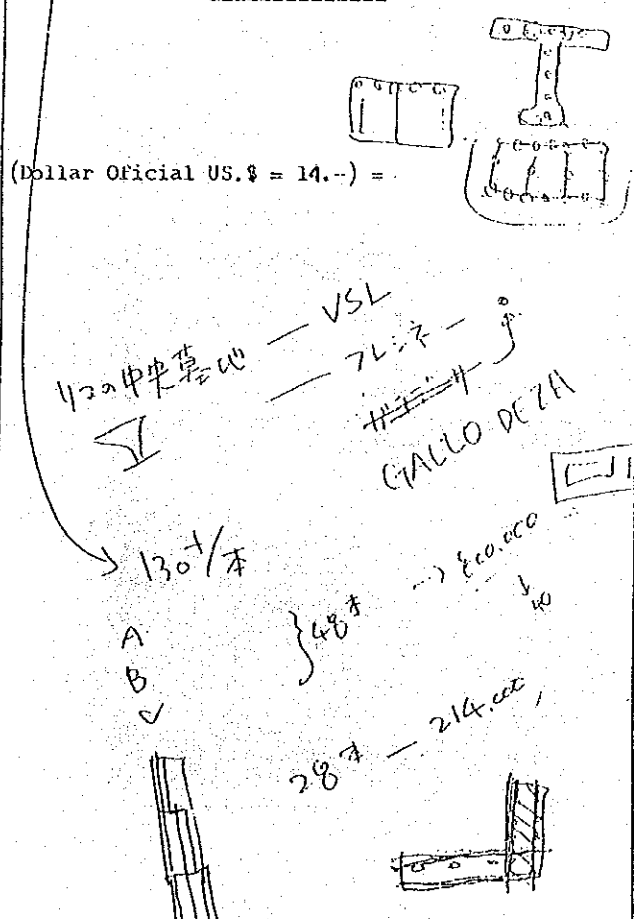 (Dollar Oficial US.$ = 14.--) =
リマの中央墓地 — VSL
— フレシネ —
GALLO DEZA
130t/本
A
B
48本
28本 — 214,000